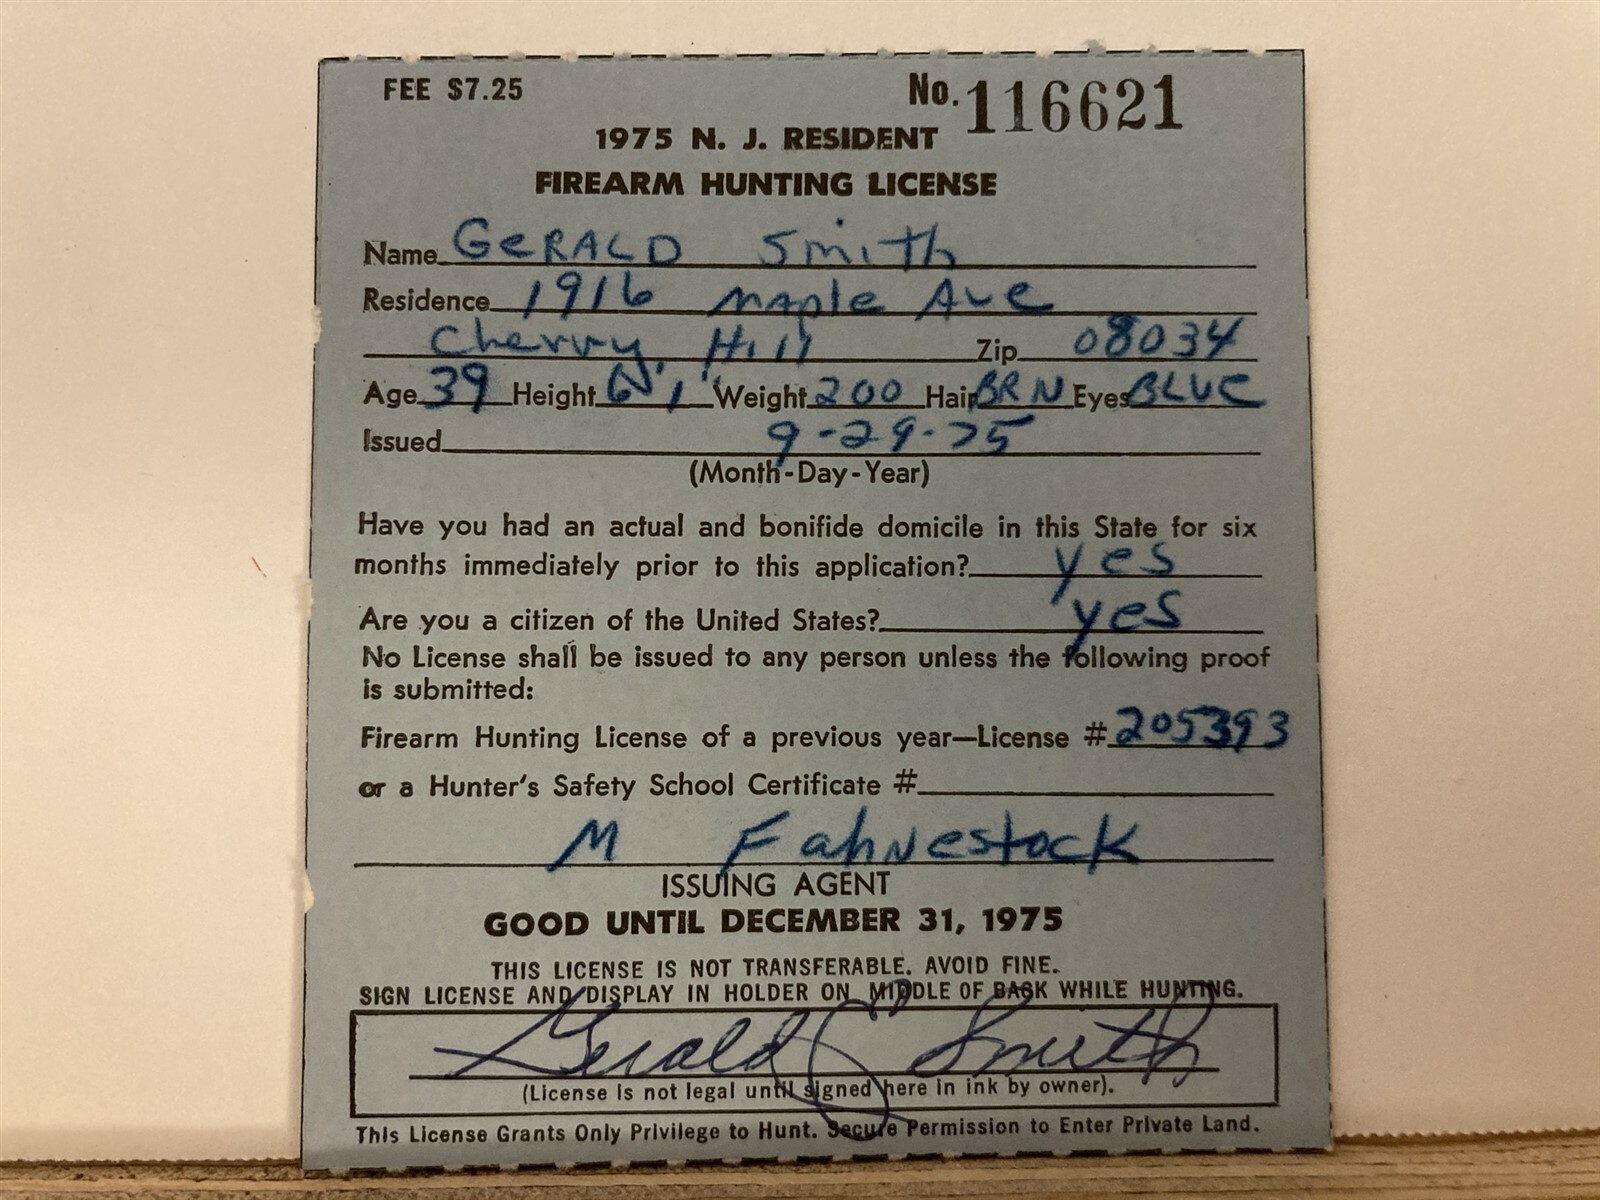 FEE $7.25 No. 116621
1975 N. J. RESIDENT
FIREARM HUNTING LICENSE
Name GeRALD Smith
Residence 1916 Maple Ave
Cherry Hill Zip 08034
Age 39 Height 6'1" Weight 200 Hair BRN Eyes BLUE
Issued 9-29-75
(Month-Day-Year)
Have you had an actual and bonifide domicile in this State for six
months immediately prior to this application? yes
Are you a citizen of the United States? yes
No License shall be issued to any person unless the following proof
is submitted:
Firearm Hunting License of a previous year—License # 205393
or a Hunter's Safety School Certificate #
M Fahnestock
ISSUING AGENT
GOOD UNTIL DECEMBER 31, 1975
THIS LICENSE IS NOT TRANSFERABLE. AVOID FINE.
SIGN LICENSE AND DISPLAY IN HOLDER ON MIDDLE OF BACK WHILE HUNTING.
Gerald C Smith
(License is not legal until signed here in ink by owner).
This License Grants Only Privilege to Hunt. Secure Permission to Enter Private Land.